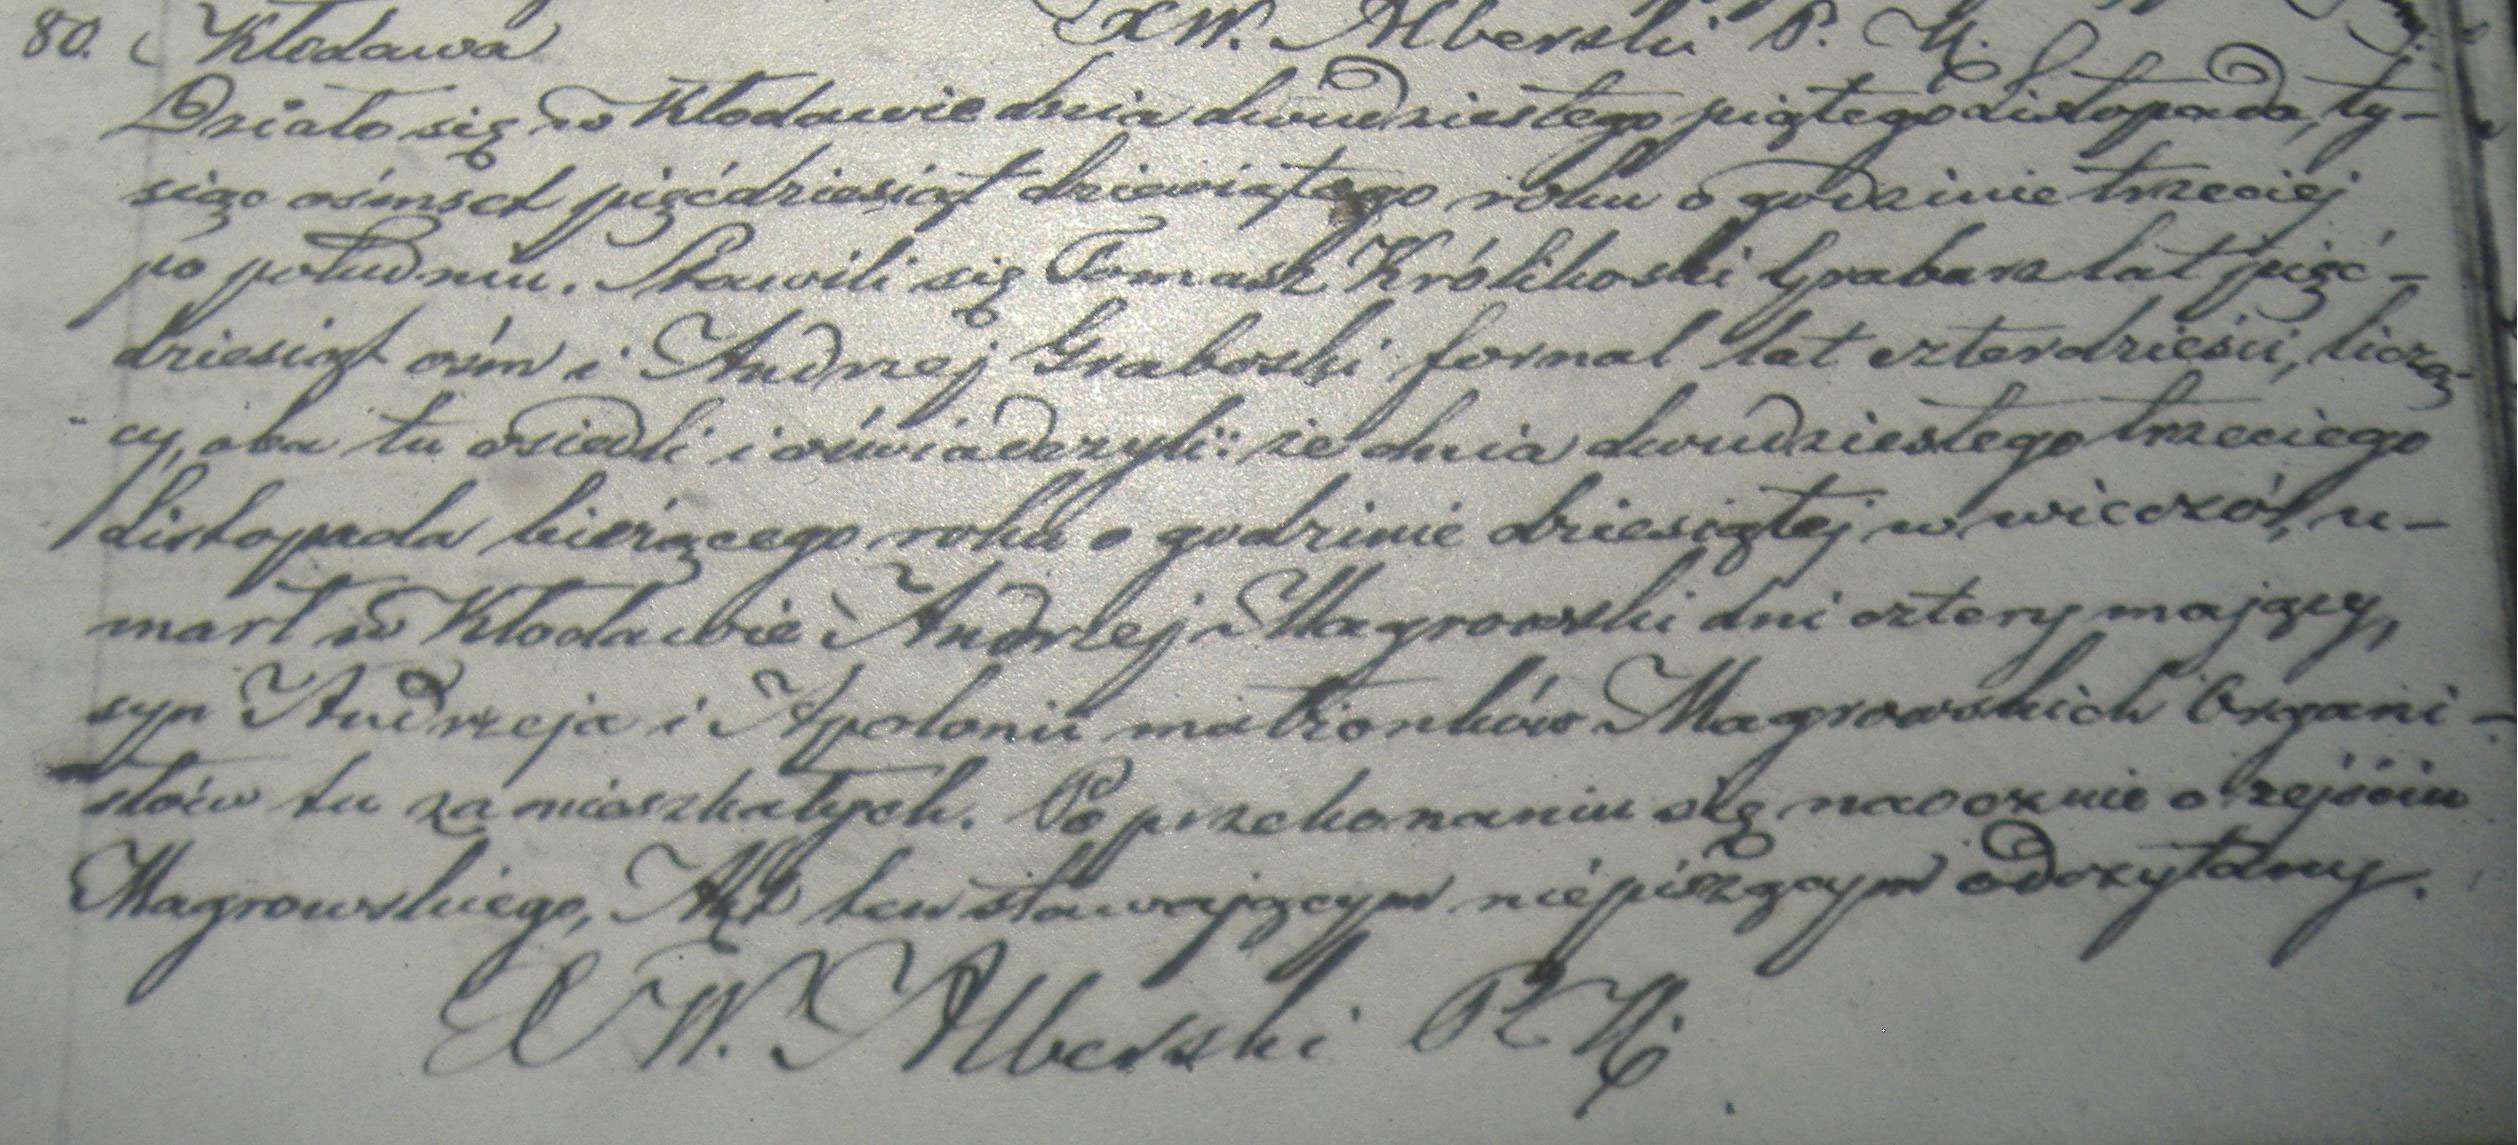 X W. Alberski P. K.
80. Kłodawa
Działo się w Kłodawie dnia dwudziestego piątego Listopada, ty-
siąc ośmset pięćdziesiąt dziewiątego roku o godzinie trzeciej
po południu. Stawili się Tomasz Królikoski Grabarz lat pięć-
dziesiąt ośm i Andrzej Graboski fornal lat czterdzieści, liczą-
cy, oba tu osiedli i oświadczyli: że dnia dwudziestego trzeciego
Listopada bieżącego roku o godzinie dziesiątej w wieczór, u-
marł w Kłodawie Andrzej Magrowski dni cztery mający,
syn Andrzeja i Apolonii małżonków Magrowskich Organi-
stów tu zamieszkałych. Po przekonaniu się naocznie o zejściu
Magrowskiego, Akt ten stawającym niepiszącym odczytany.
X W. Alberski